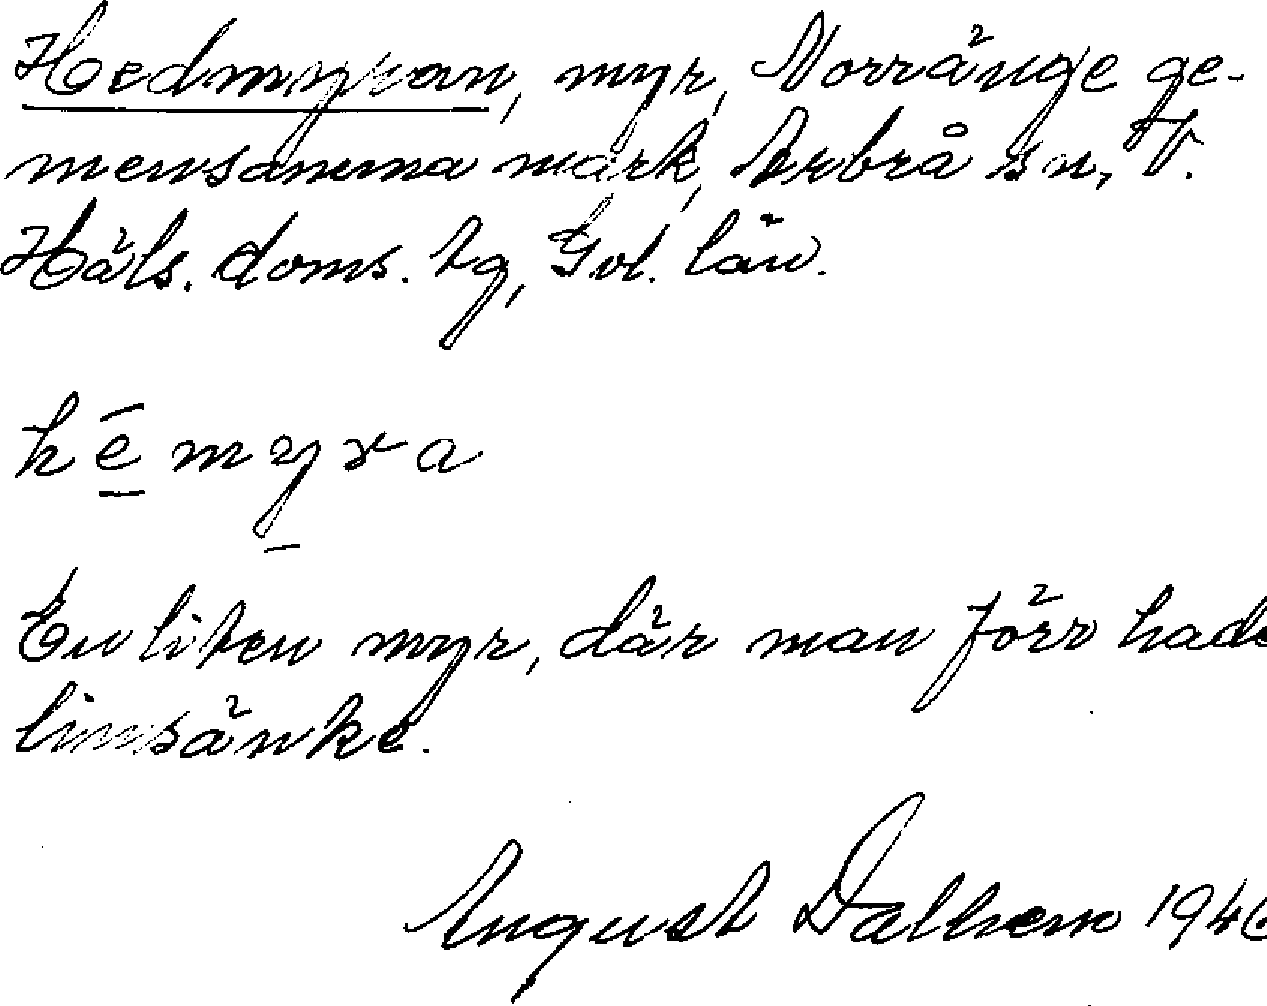 Hedmyran, myr, Norränge ge-
mensamma mark, Arbrå sn, V.
Häls. doms. tg, Gvl. län.
hēmyra
En liten myr, där man förr hade
linsänke.
August Dalhem 1946